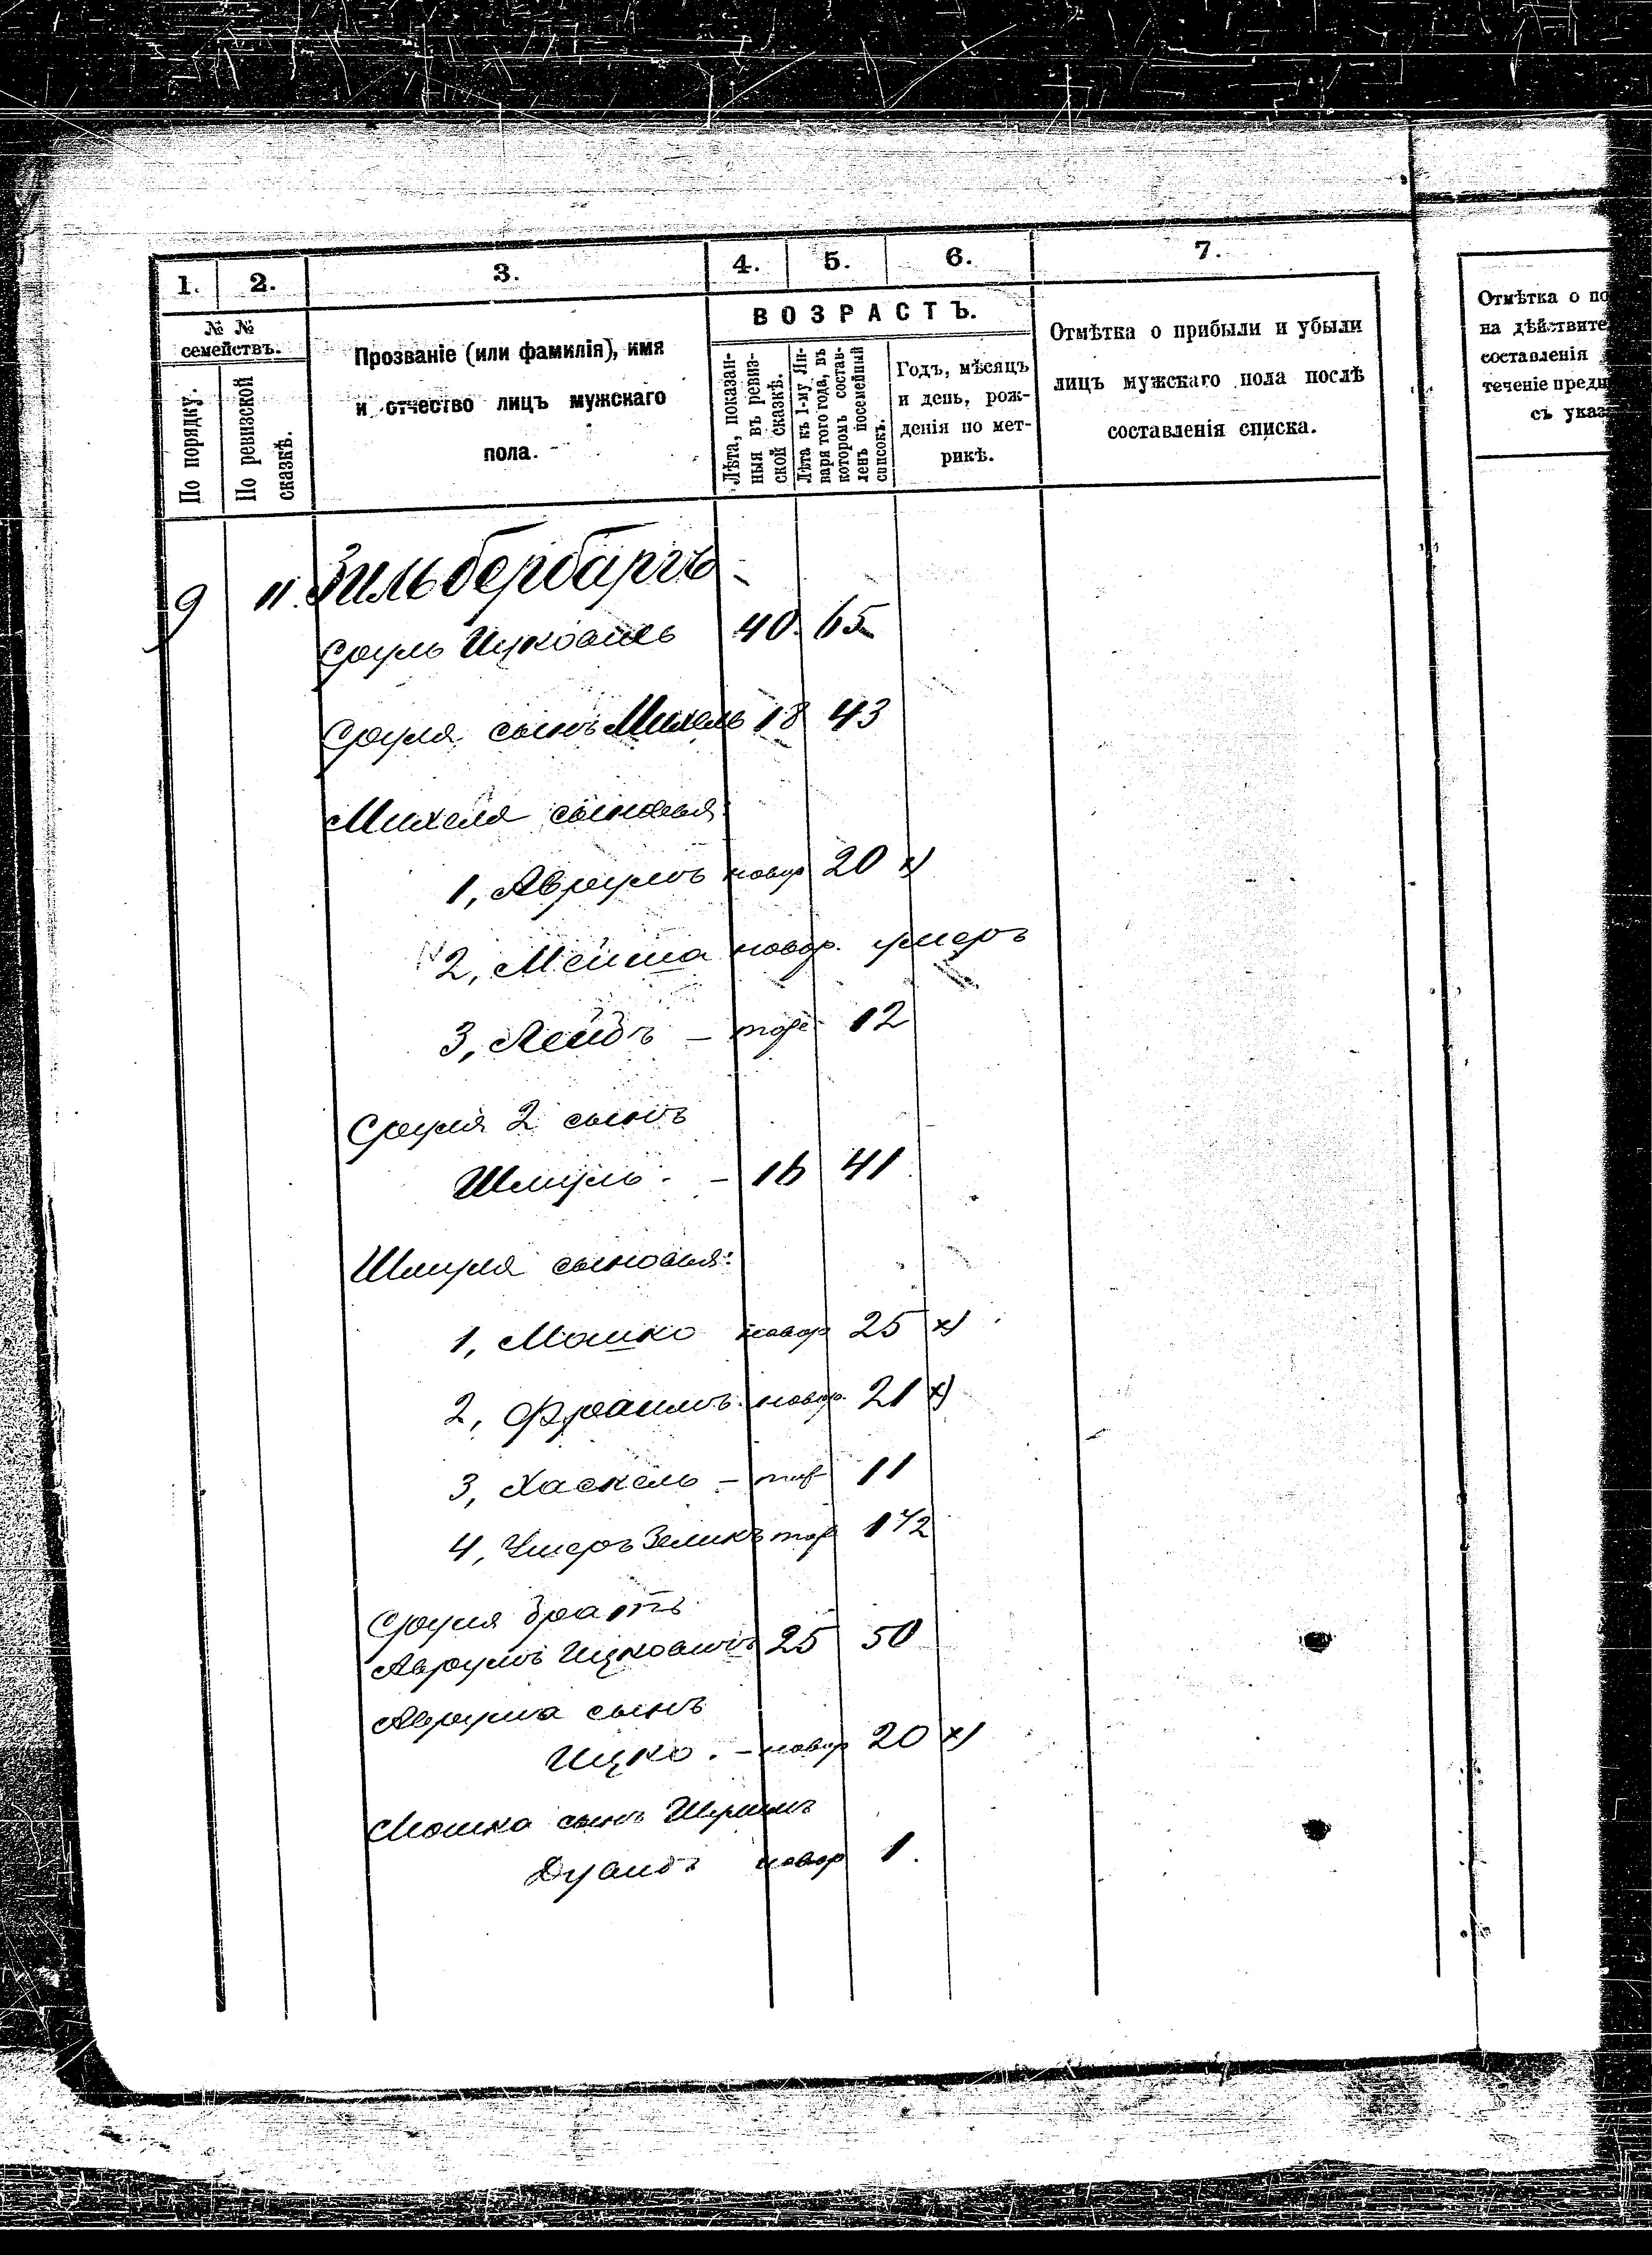 1. 2. 3. 4. 5. 6. 7.
№ № семействъ.
По порядку.
По ревизской сказкѣ.
Прозваніе (или фамилія), имя
и отчество лицъ мужскаго
пола.
ВОЗРАСТЪ.
Лѣта, показан-
ныя въ ревиз-
ской сказкѣ.
Лѣта къ 1-му Ян-
варя того года, въ
которомъ состав-
ленъ посемейный
списокъ.
Годъ, мѣсяцъ
и день, рож-
денія по мет-
рикѣ.
Отмѣтка о прибыли и убыли
лицъ мужскаго пола послѣ
составленія списка.
Отмѣтка о по
на дѣйствите
составленія
теченіе преды
съ указ
9 11. Зильбербаргъ
Сруль Ицковичъ 40. 65
Сруля сынъ Михель 18 43
Михеля сыновья:
1, Аврумъ новор 20 х)
2, новор. умеръ
3, Лейбъ — тоже 12
Сруля 2 сынъ
Шмуль. — 16 41
Шмуля сыновья:
1, Мошко новор 25 х)
2, Фроимъ новор. 21 х)
3, Хаскель — тоже 11
4, Умеръ Зеликъ тоже 1 1/2
Сруля братъ
Аврумъ Ицковичъ 25 50
Аврума сынъ
Ицко. — новор 20 х)
Мошка сынъ
новор 1.